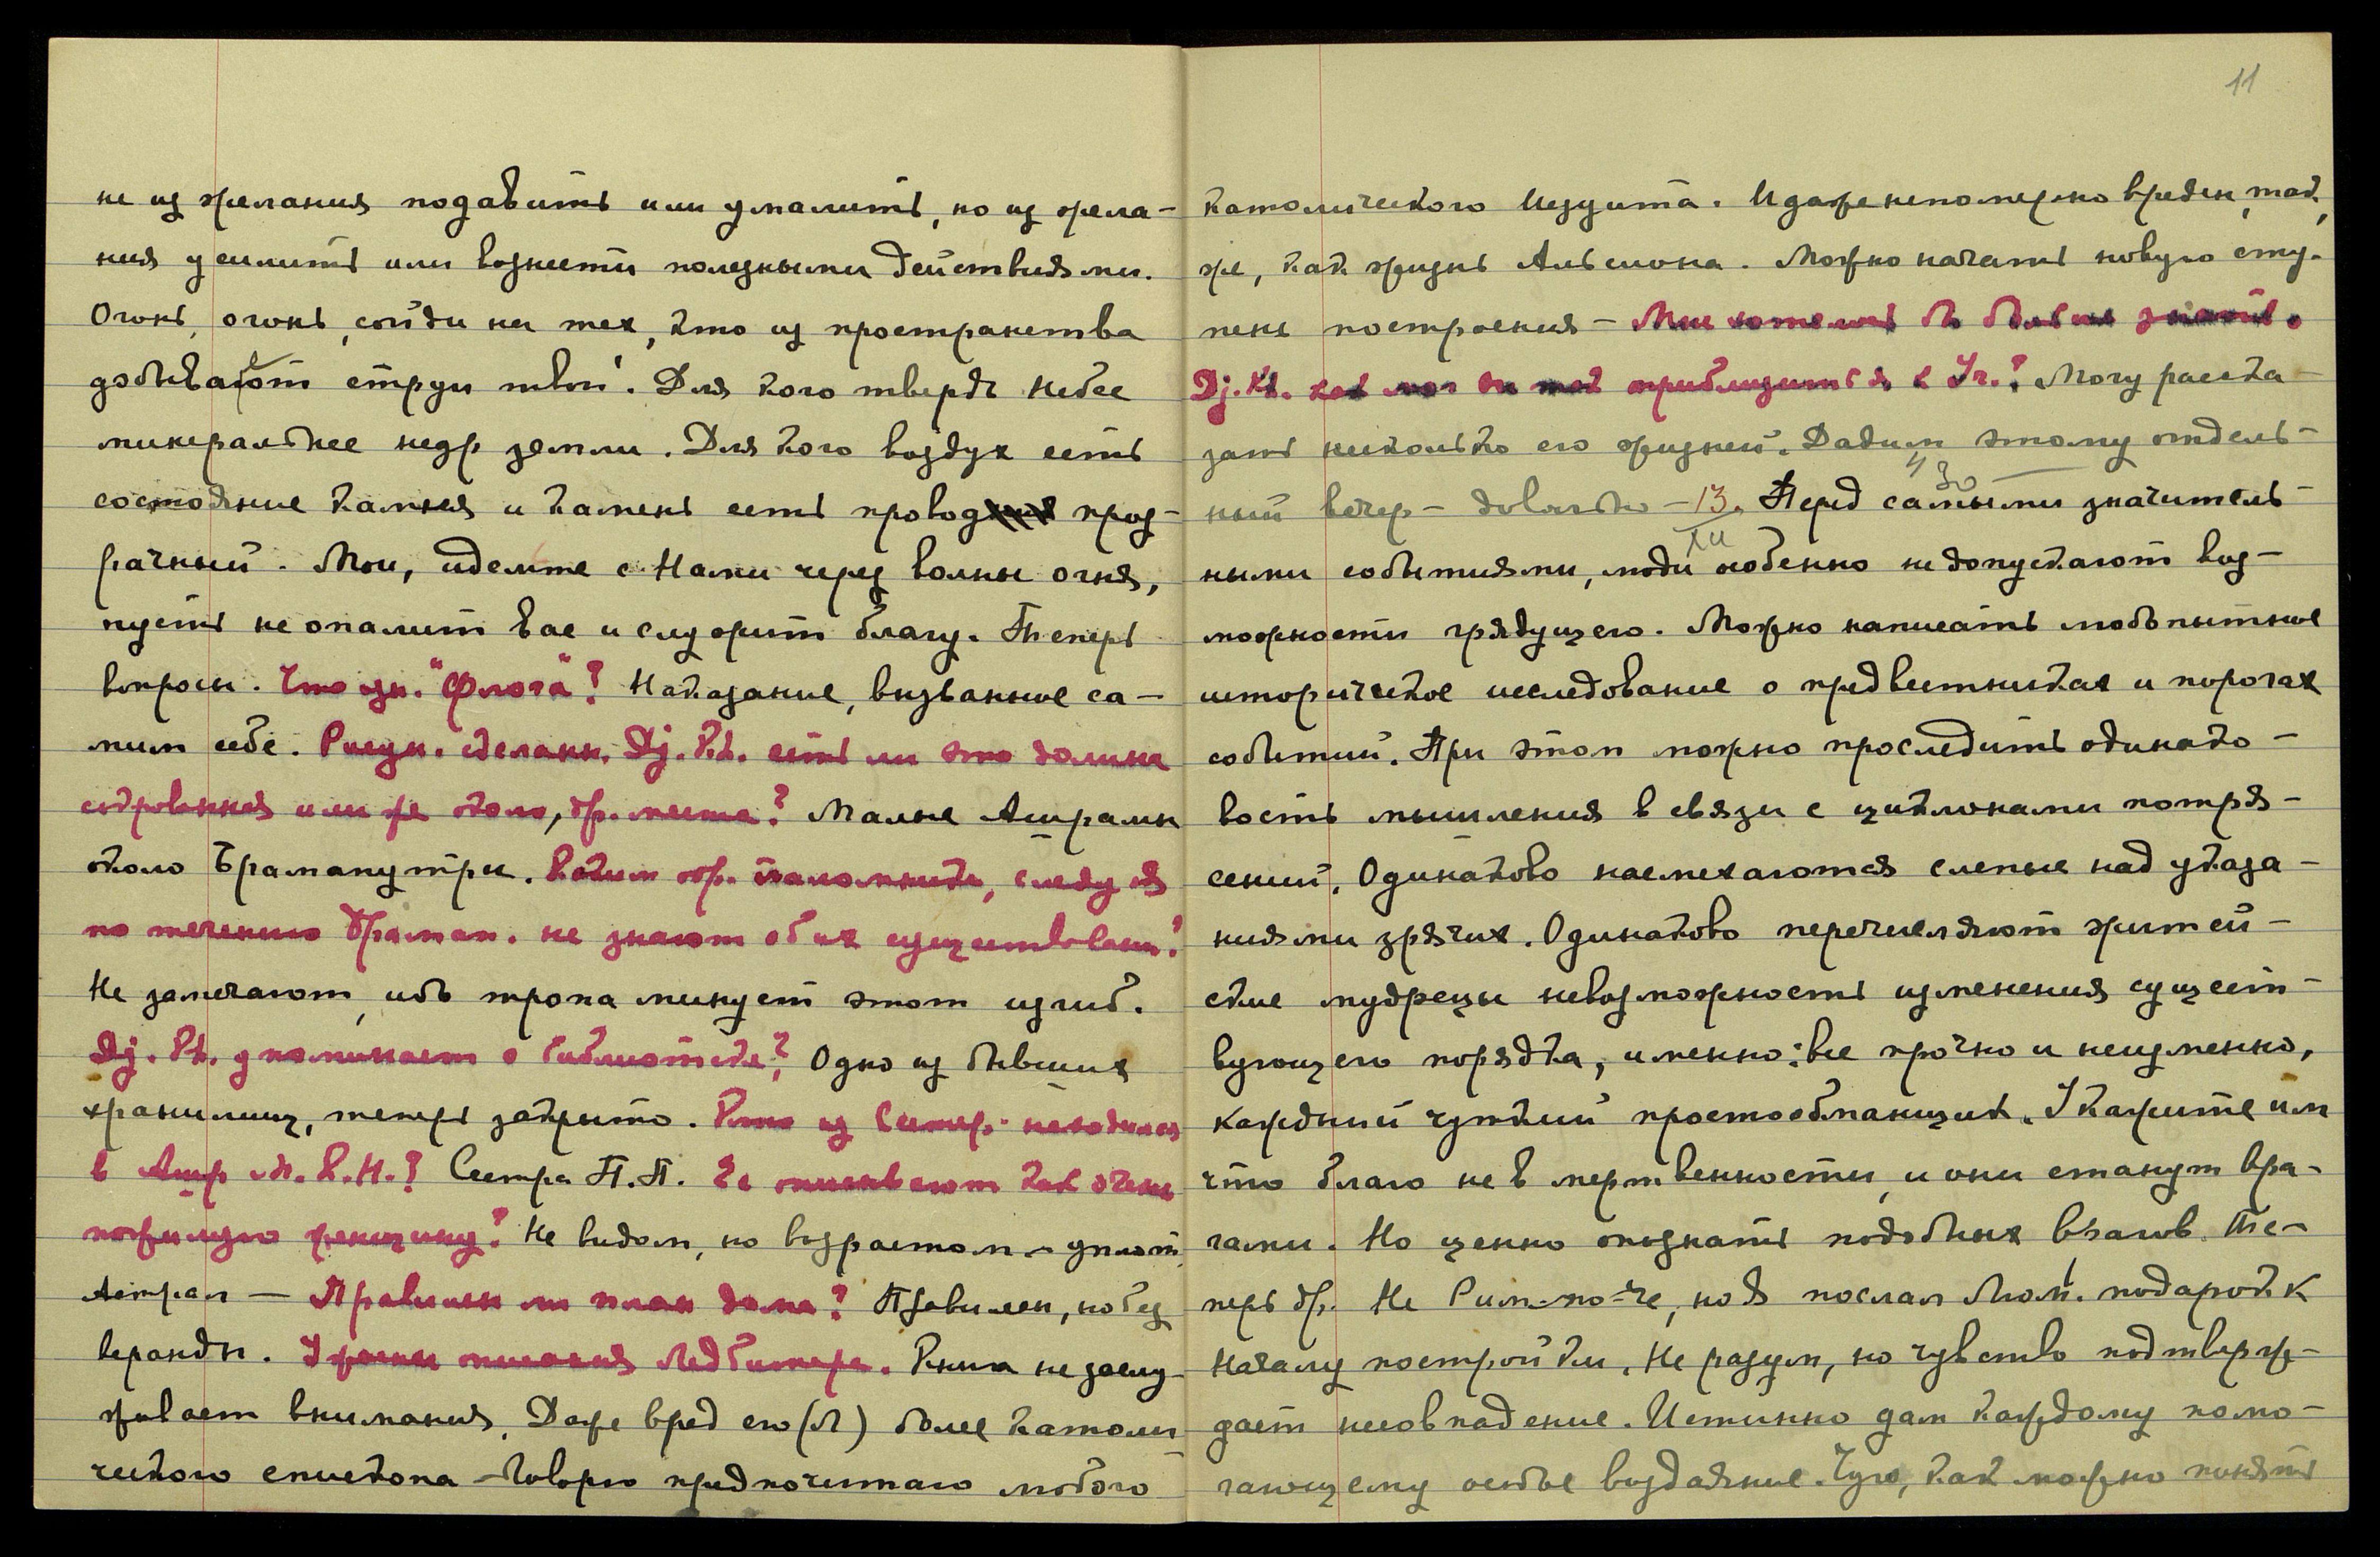 не из желания подавить или умалить, но из жела-
ния усилить или вознести полезными действиями.
Огонь, огонь, сойди на тех, кто из пространства
добывают струи твои. Для кого твердь небес
минеральнее недр земли. Для кого воздух есть
состояние камня и камень есть провод проз-
рачный. Мои, идемте с Нами через волны огня,
пусть не опалит вас и служит благу. Теперь
вопросы. Что зн. "Флога"? Наказание, вызванное са-
мим себе. Рисун. сделанн. Dj. Кh. есть ли это долина
сокровенная или же около, др. места? Малые Ашрамы
около Брамапутры. Каким обр. паломники, следуя
по течению Брамап. не знают об их существован?
Не замечают, ибо тропа минует этот изгиб.
Dj. Kh. упоминает о библиотеке? Одно из бывших
хранилищ, теперь закрыто. Кто из Сестер находился
в Ашр М. К.Н.? Сестра П.П. Ее описывают как очень
пожилую женщину? Не видом, но возрастом - уплотн.
Астрал — Правилен ли план дома? Правилен, но без
веранды. Ужасны описания Ледбитера. Книга не заслу-
живает внимания. Даже вред его (Л) более католи
ческого епископа - Говорю предпочитаю любого
11
католического Иезуита. И даже непомерно вреден, так
же, как жизнь Альсиона. Можно начать новую сту-
пень построения - Мне хотелось бы больше знать о
Dj. Kh. как мог он так приблизиться к Уч.? Могу расска-
зать несколько его жизней. Дадим этому отдель-
ный вечер - довольно - 13. Перед самыми значитель-
XII 30
ными событиями, люди особенно не допускают воз-
можности грядущего. Можно написать любопытное
историческое исследование о предвестниках и порогах
событий. При этом можно проследить одинако-
вость мышления в связи с циклонами потря-
сений. Одинаково насмехаются слепые над указа-
ниями зрячих. Одинаково перечисляют житей-
ские мудрецы невозможность изменения сущест-
вующего порядка, именно: все прочно и неизменно,
каждый чуткий просто обманщик. Укажите им
что благо не в мертвенности, и они станут вра-
гами. Но ценно опознать подобных врагов. Те-
перь др. Не Рим-по-че, но Я послал Люм. подарок к
Началу постройки. Не разум, но чувство подтверж-
дает несовпадение. Истинно дам каждому помо-
гающему особое воздаяние. Чую, как можно понять